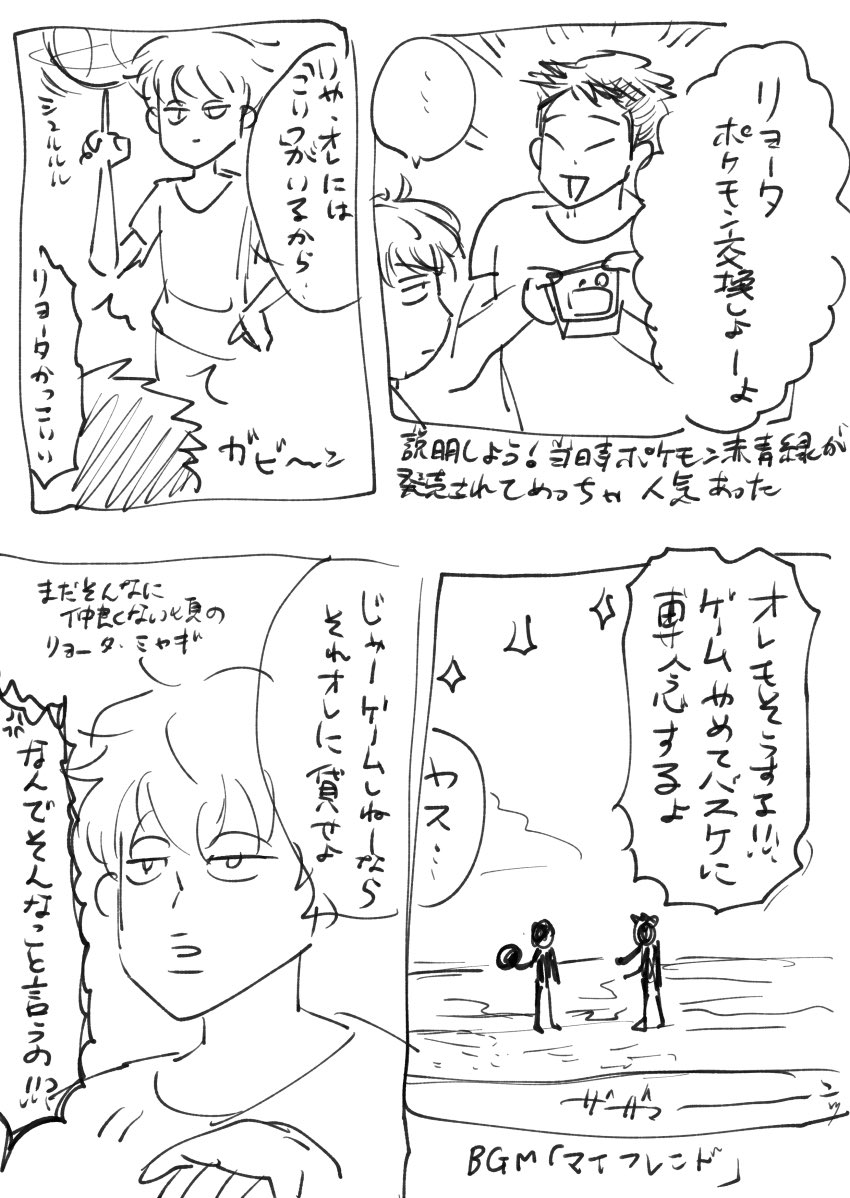 リョータ
ポケモン交換しよーよ
……
説明しよう！当時ポケモン赤青緑が
発売されてめっちゃ人気あった
いや、オレには
こいつがいるから…
シュルルルル
リョータかっこいい
ガビ〜ン
オレもそうする!!
ゲームやめてバスケに
専念するよ
ヤス…
ザザーザー
BGM「マイフレンド」
じゃーゲームしねーなら
それオレに貸せよ
まだそんなに
仲良くない頃の
リョータ・ミヤギ
なんでそんなこと言うの!!